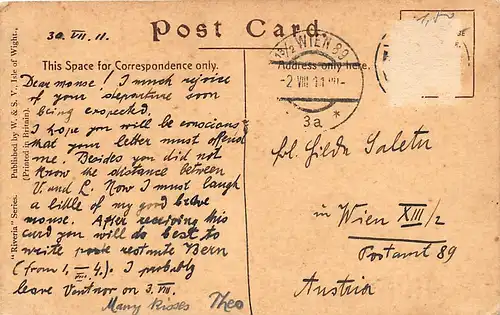 Post Card.
30. VII. 11.
This Space for Correspondence only.
Address only here.
"Riveria" Series. Published by W. & S. V., Isle of Wight.
[Printed in Britain].
Dear mouse! I much rejoice
of your departure soon
being expected.
I hope you will be conscious
that your letter must offend
me. Besides you did not
know the distance between
V and L. Now I must laugh
a little of my good brave
mouse. After receiving this
card you will do best to
write poste restante Bern
(from 1.-4.). I probably
leave Ventnor on 3. VIII.
Many Kisses Theo
13/2 WIEN 89
-2 VIII 11
3a *
1,50
Frl. Hilda
in Wien XIII/2
Postamt 89
Austria